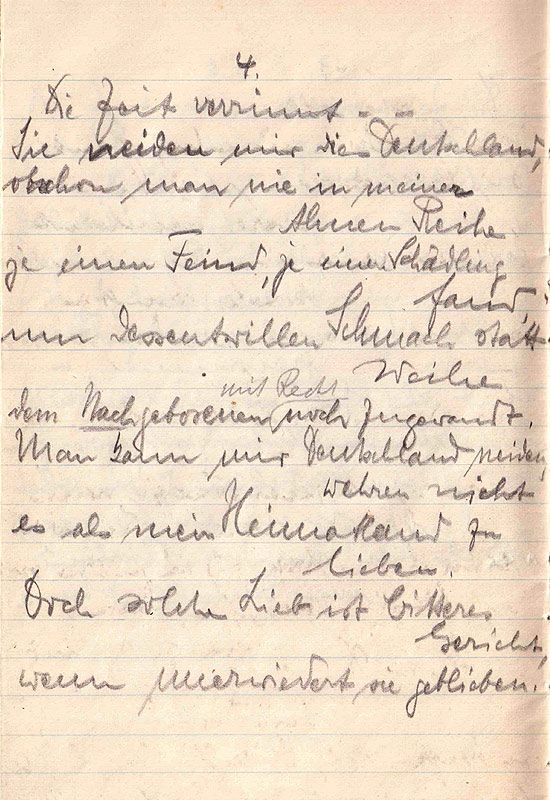 4.
Die Zeit verrinnt - -
Sie neiden mir dies Deutschland,
obschon man nie in meiner
Ahnen Reihe
je einen Feind, je einen Schädling
fand,
um dessentwillen Schmach statt
Weihe
mit Recht
dem Nachgeborenen noch zugewandt.
Man kann mir Deutschland neiden,
wehren nicht
es als mein Heimatland zu
lieben.
Doch solche Lieb ist bitteres
Gericht,
wenn unerwiedert sie geblieben.